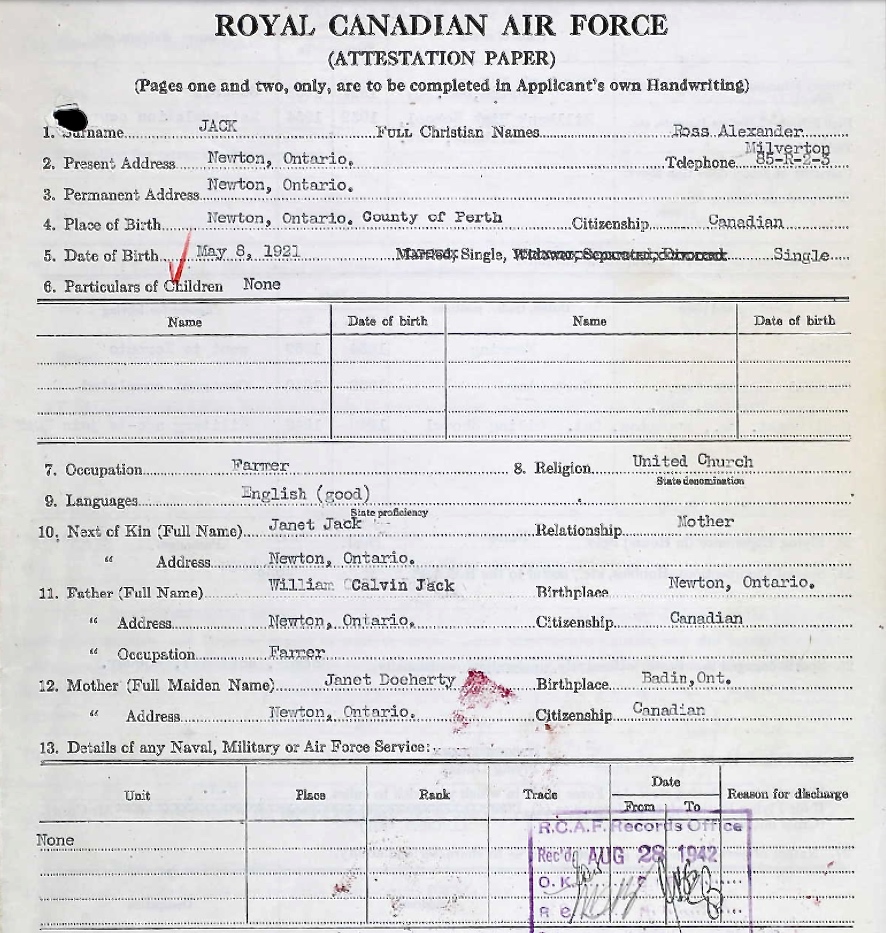 ROYAL CANADIAN AIR FORCE
(ATTESTATION PAPER)
(Pages one and two, only, are to be completed in Applicant's own Handwriting)
1. Surname JACK FULL Christian Names Ross Alexander
Milverton
2. Present Address Newton, Ontario. Telephone 85-R-2-3
3. Permanent Address Newton, Ontario.
4. Place of Birth Newton, Ontario. County of Perth Citizenship Canadian
5. Date of Birth May 8, 1921 Married, Single, Widower, Separated, Divorced Single
6. Particulars of Children None
Name Date of birth Name Date of birth
7. Occupation Farmer 8. Religion United Church
State denomination
9. Languages English (good)
State proficiency
10. Next of Kin (Full Name) Janet Jack Relationship Mother
" Address Newton, Ontario.
11. Father (Full Name) William Calvin Jack Birthplace Newton, Ontario.
" Address Newton, Ontario. Citizenship Canadian
" Occupation Farmer
12. Mother (Full Maiden Name) Janet Docherty Birthplace Badin, Ont.
" Address Newton, Ontario. Citizenship Canadian
13. Details of any Naval, Military or Air Force Service:
Unit Place Rank Trade Date Reason for discharge
From To
None
R.C.A.F. Records Office
Rec'd. AUG 28 1942
O.K.